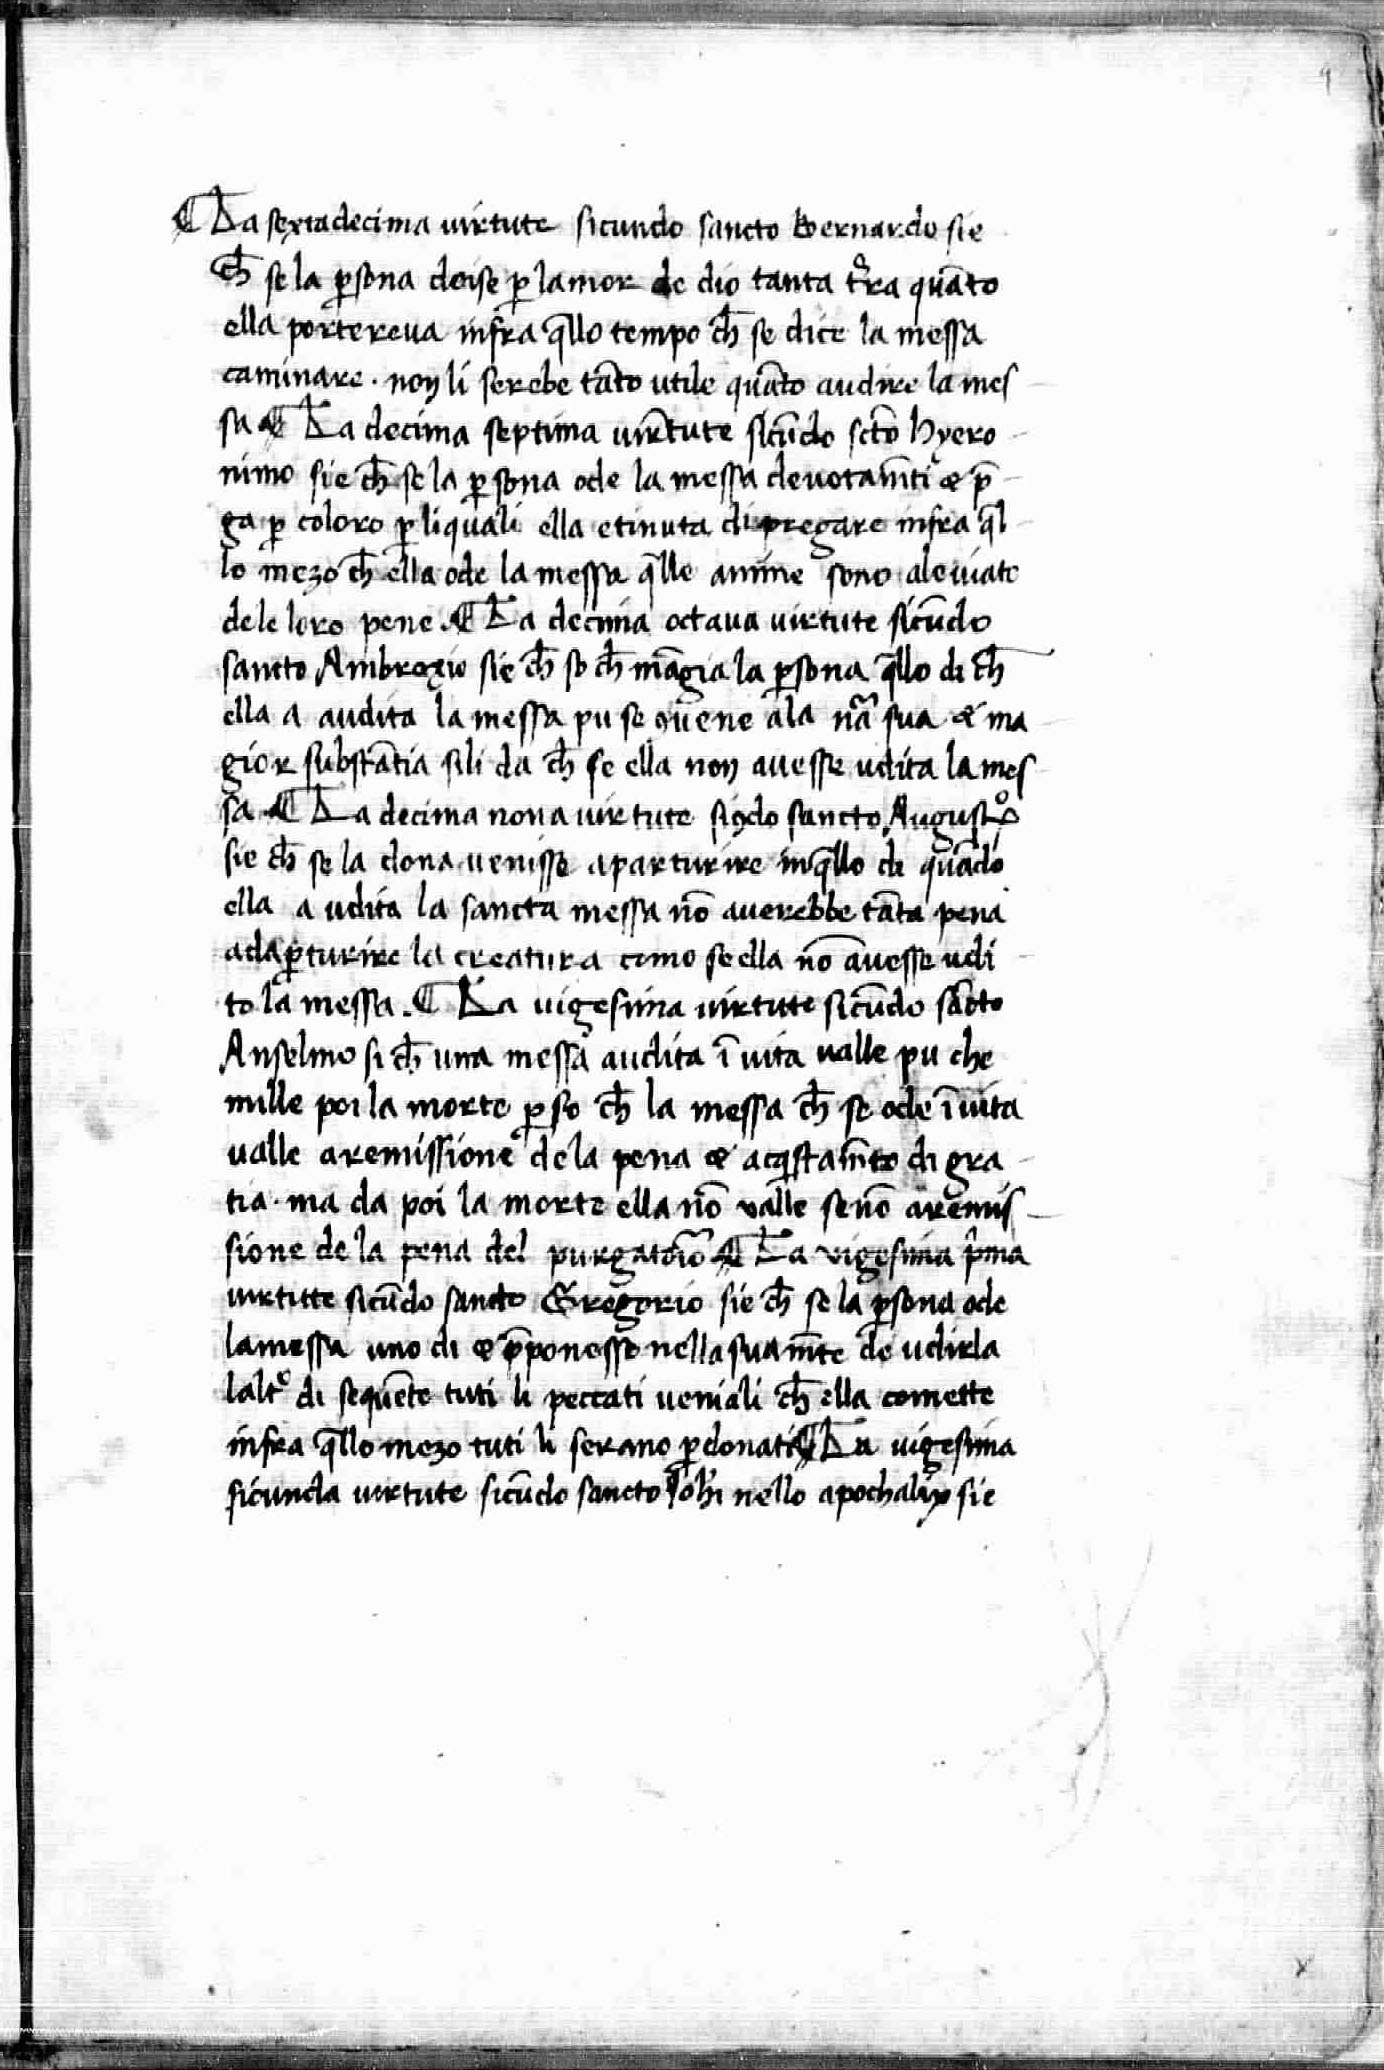 ¶ La sextadecima uirtute sicundo sancto Bernardo sie
ch̄ se la ꝑsona deise ꝑ lamor de dio tanta t̉ra quāto
ella portereua infra q̄llo tempo ch̄ se dice la messa
caminare · non li serebe tāto utile quāto audire la mes
sa ¶ La decima septima uirtute sicūdo sc̄to hyero
nimo sie ch̄ se la ꝑsona ode la messa deuotam̄ti & p̄
ga ꝑ coloro ꝑ li quali ella etinuta di pregare infra q̄l
lo mezo ch̄ ella ode la messa q̄lle anime sono aleuiate
dele loro pene . ¶ La decima octaua uirtute sicūdo
sancto Ambroxio sie ch̄ so ch̄ māgia la ꝑsona q̄llo di ch̄
ella a audita la messa pu se ꝯuene ala nā sua & ma
gior substātia sili da ch̄ se ella non auesse udita la mes
sa ¶ La decima nona uirtute siꝯdo sancto Augustº
sie ch̄ se la dona uenisse aparturire in q̄llo di quādo
ella a udita la sancta messa nō auerebbe tāta pena
adaꝑturire la creatura como se ella nō auesse udi
to la messa . ¶ La uigesima uirtute sicūdo sācto
Anselmo si ch̄ una messa audita ī uita ualle pu che
mille poi la morte ꝑ so ch̄ la messa ch̄ se ode ī uita
ualle aremissione dela pena & acq̄stam̄to di gra
tia · ma da poi la morte ella nō valle se nō aremis
sione de la pena del purgatoīo ¶ La vigesima pͥma
uirtute sicūdo sancto Gregorio sie ch̄ se la ꝑsona ode
lamessa uno di & p̄ponesse nella sua m̄te de udirla
laltº di sequēte tuti li peccati ueniali ch̄ ella comette
infra q̄llo mezo tuti li serano ꝑdonati ¶ La uigesima
sicunda uirtute sicūdo sancto Ioh̄i nello apochalix sie